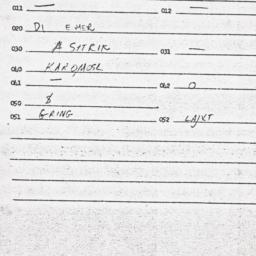 011 — 012 —
020 DI EMER
030 A SITRIK 031 —
040 KARQMOSL
041 — 042 O
050 $
051 GRING 052 LAJKT